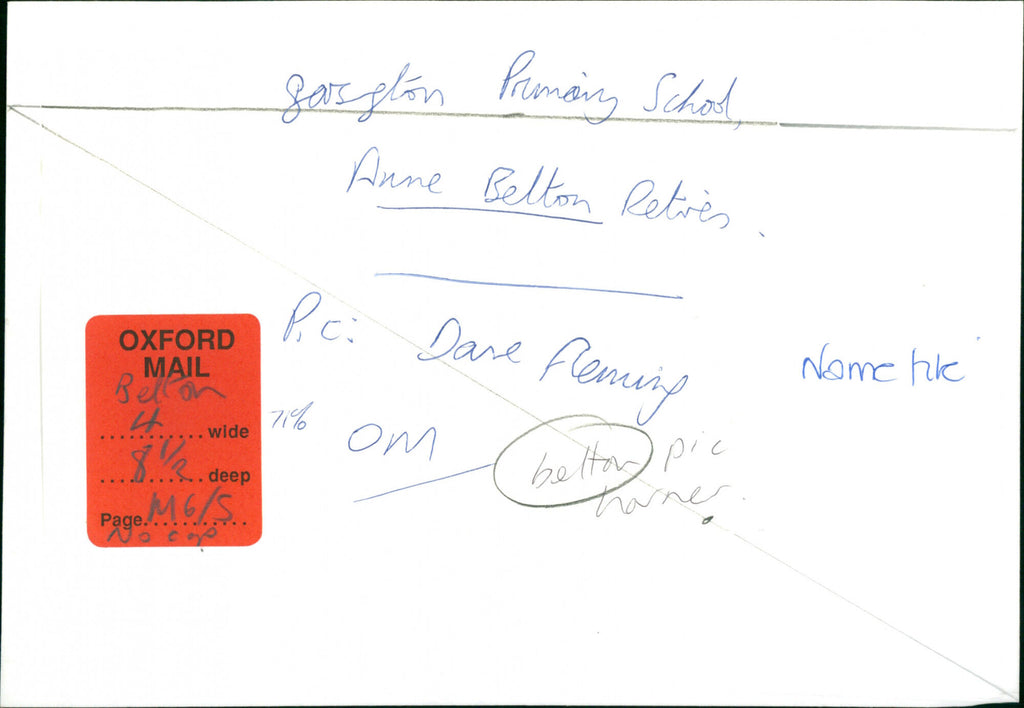 garsgton Primary School,
Anne Belton Retires.
Pic: Dave Fleming
Name tk
OXFORD
MAIL
Belton
4 wide
8 1/2 deep
Page M6/5
No cap
71%
OM
belton pic
horner.